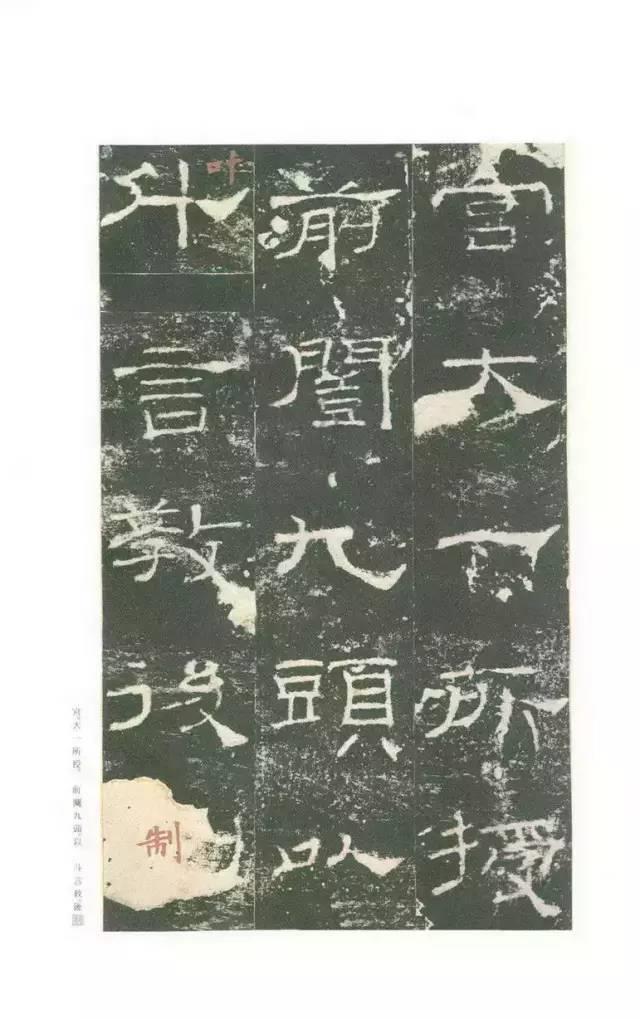 宮大一所授
前闓九頭以
斗言教後制
叶
宮大一所授。前闓九頭以 斗言教後制